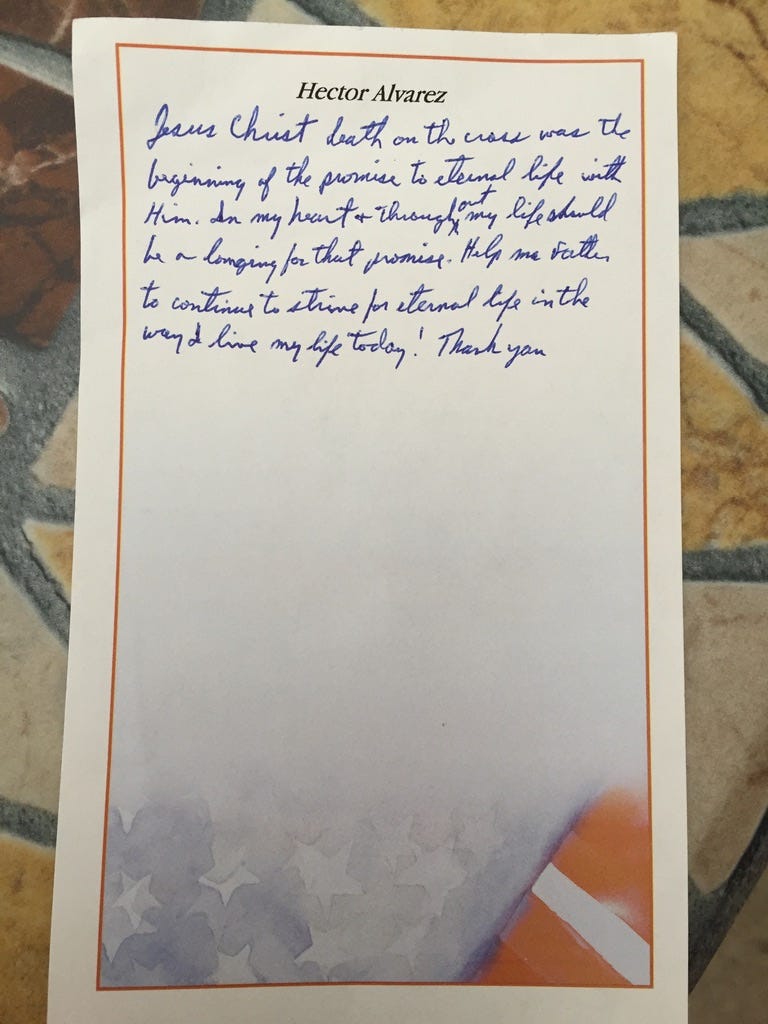 Hector Alvarez
Jesus Christ death on the cross was the
beginning of the promise to eternal life with
Him. In my heart + throughout my life should
be a longing for that promise. Help me Father
to continue to strive for eternal life in the
way I live my life today! Thank you